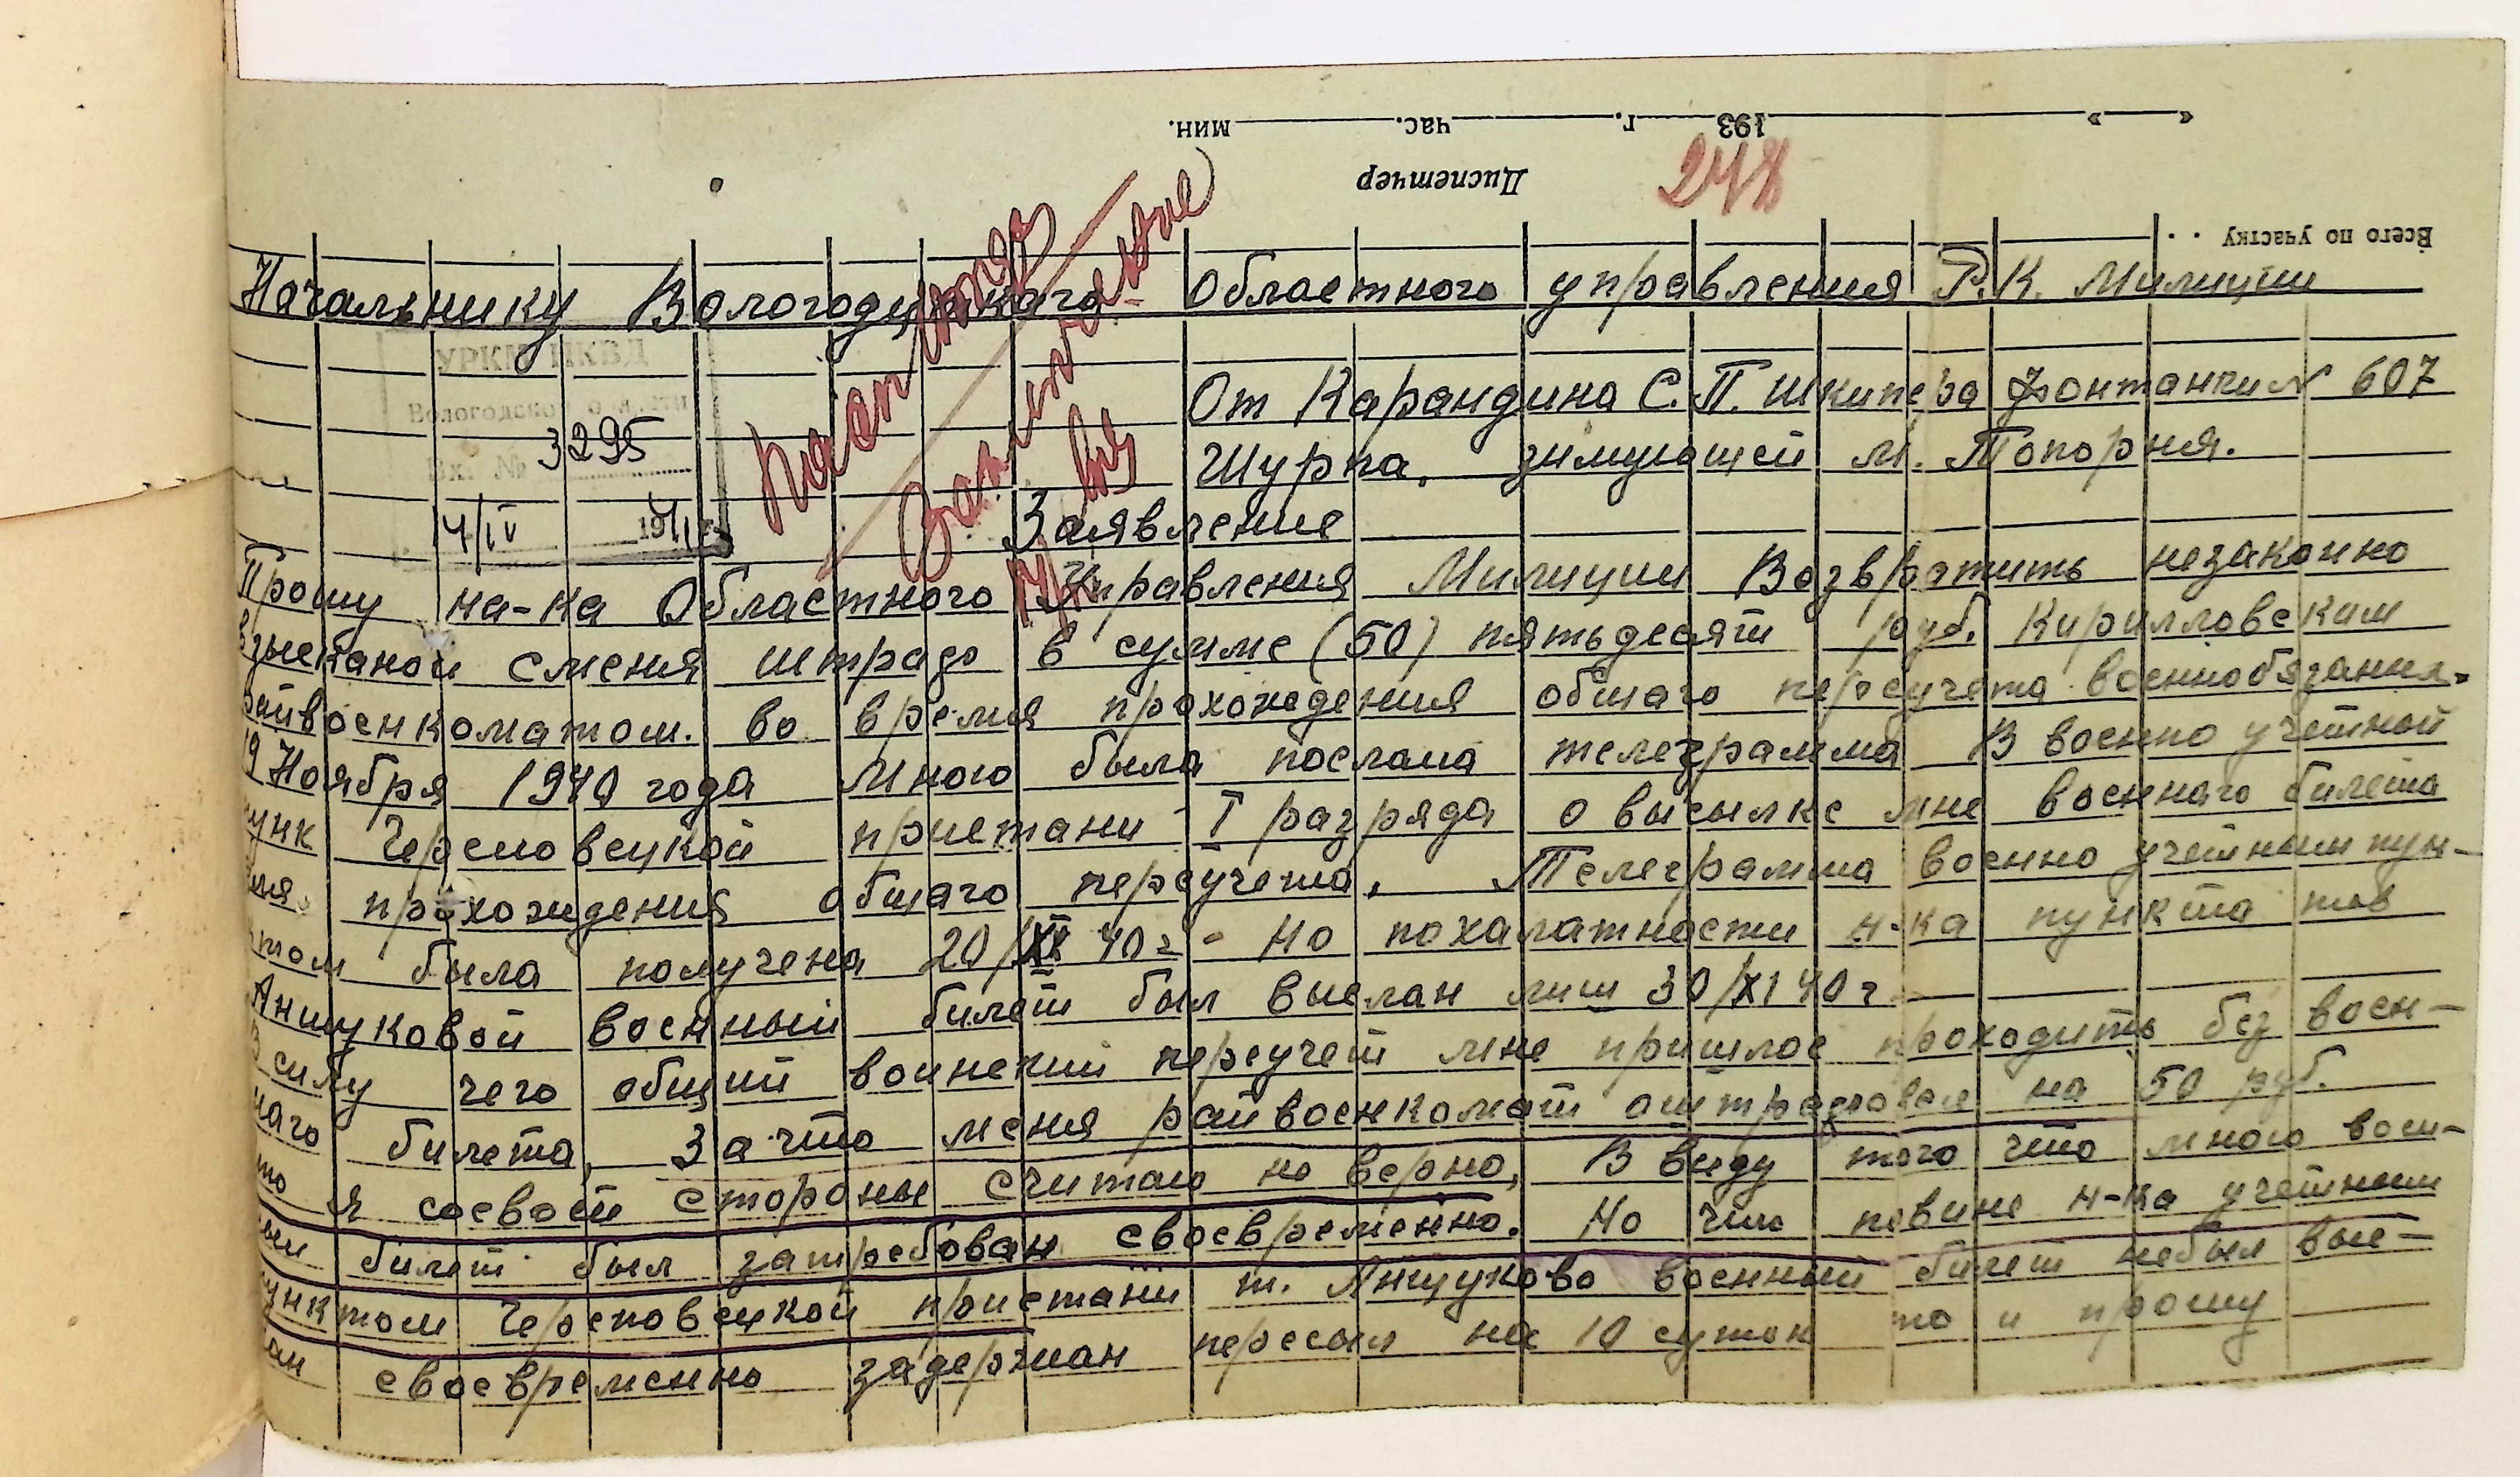 « » 193 г. час. мин.
Диспетчер
248
Всего по участку . .
Начальнику Вологодцкаго Областного управления Р.К. Милиции
УРКМ НКВД
Вологодской области
Вх. № 3295
4/IV 1941 г.
От Карандина С.П. Шкипера фонтанки № 607
Шурпа, зимующей м. Топорня.
Заявление
Прошу на-ка Областного Управления Милиции Возвратить незаконно
взысканой сменя штраф в сумме (50) пятьдесят руб. Кирилловским
райвоенкоматом. во время прохождения общаго переучета военнобязання.
19 Ноября 1940 года Мною была послана телеграмма В военно учетной
пунк Череповецкой пристани I разряда о высылке мне военнаго билета
для прохождения общаго переучета, Телеграмма военно учетным пун-
ктом была получена 20/XI 40г - Но похалатности н-ка пункта тов
Анщуковой военный билет был выслан лиш 30/XI 40 г
В силу чего общий воинский переучет мне пришлос проходить без воен-
наго билета, За что меня райвоенкомат оштрафовал на 50 руб.
что я соевоей стороны считаю не верно, В виду того что мною воен-
ный билет был затребован своевременно. Но повине н-ка учетным
пунктом Череповецкой пристани т. Анщуково военный билет небыл выс-
лан своевременно задержан пересыл на 10 суток то и прошу